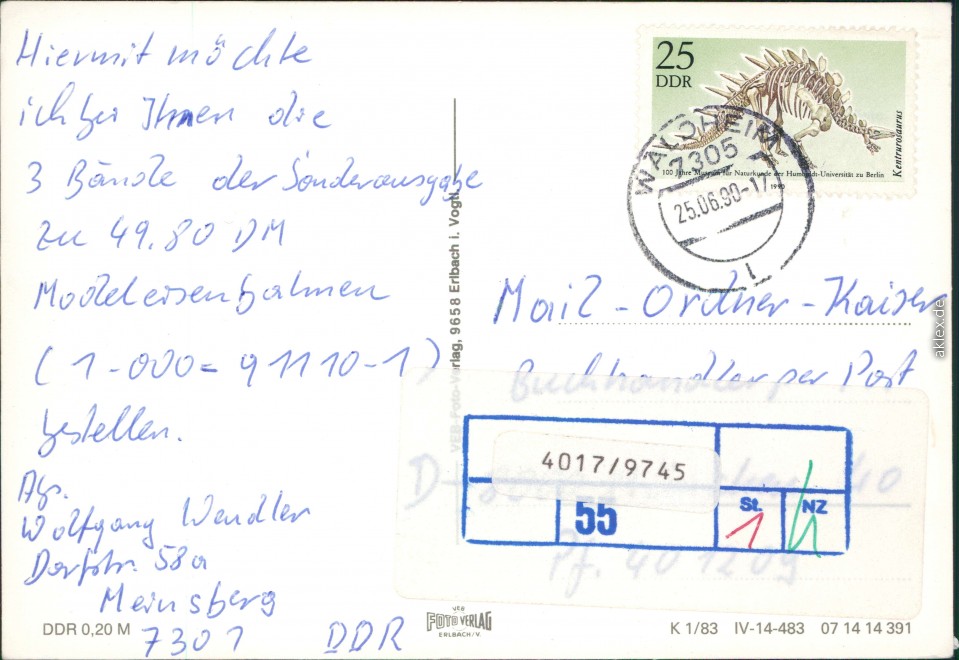 Hiermit möchte
ich bei Ihnen die
3 Bände der Sonderausgabe
zu 49.80 DM
Modeleisenbahnen
(1-000=91110-1)
bestellen.
Abs.
Wolfgang Wendler
Dorfstr. 58a
Meinsberg
7301 DDR
DDR 0,20 M
VEB Foto-Verlag, 9658 Erlbach i. Vogtl.
VEB
FOTO VERLAG
ERLBACH/V.
25
DDR
Kentrurosaurus
100 Jahre Museum für Naturkunde der Humboldt-Universität zu Berlin
1990
WALDHEIM
7305
25.06.90-17
Mail-Ordner-Kaiser
Buchhandler per Post
D-8000 40
Pf. 401209
4017/9745
55
St.
1
NZ
1
K 1/83 IV-14-483 07 14 14 391
aklex.de